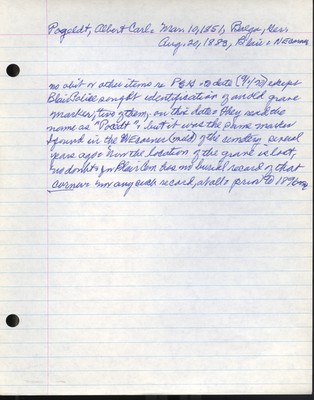 Pogeldt, Albert Carl. Mar. 10, 1851, Ger.
Aug. 20, 1883, Blair, NE
no obit or other items re P & H to date (9/1/73) except
Blair Police sought identification of an old grave
marker, two of them, on this date. They read the
name as "Pogdt", but it was the same marker
I found in the NE corner of the cemetery several
years ago. Now the location of the grave is lost,
no doubt, for Blair Cem. has no burial record of that
corner nor any such record, at all, prior to